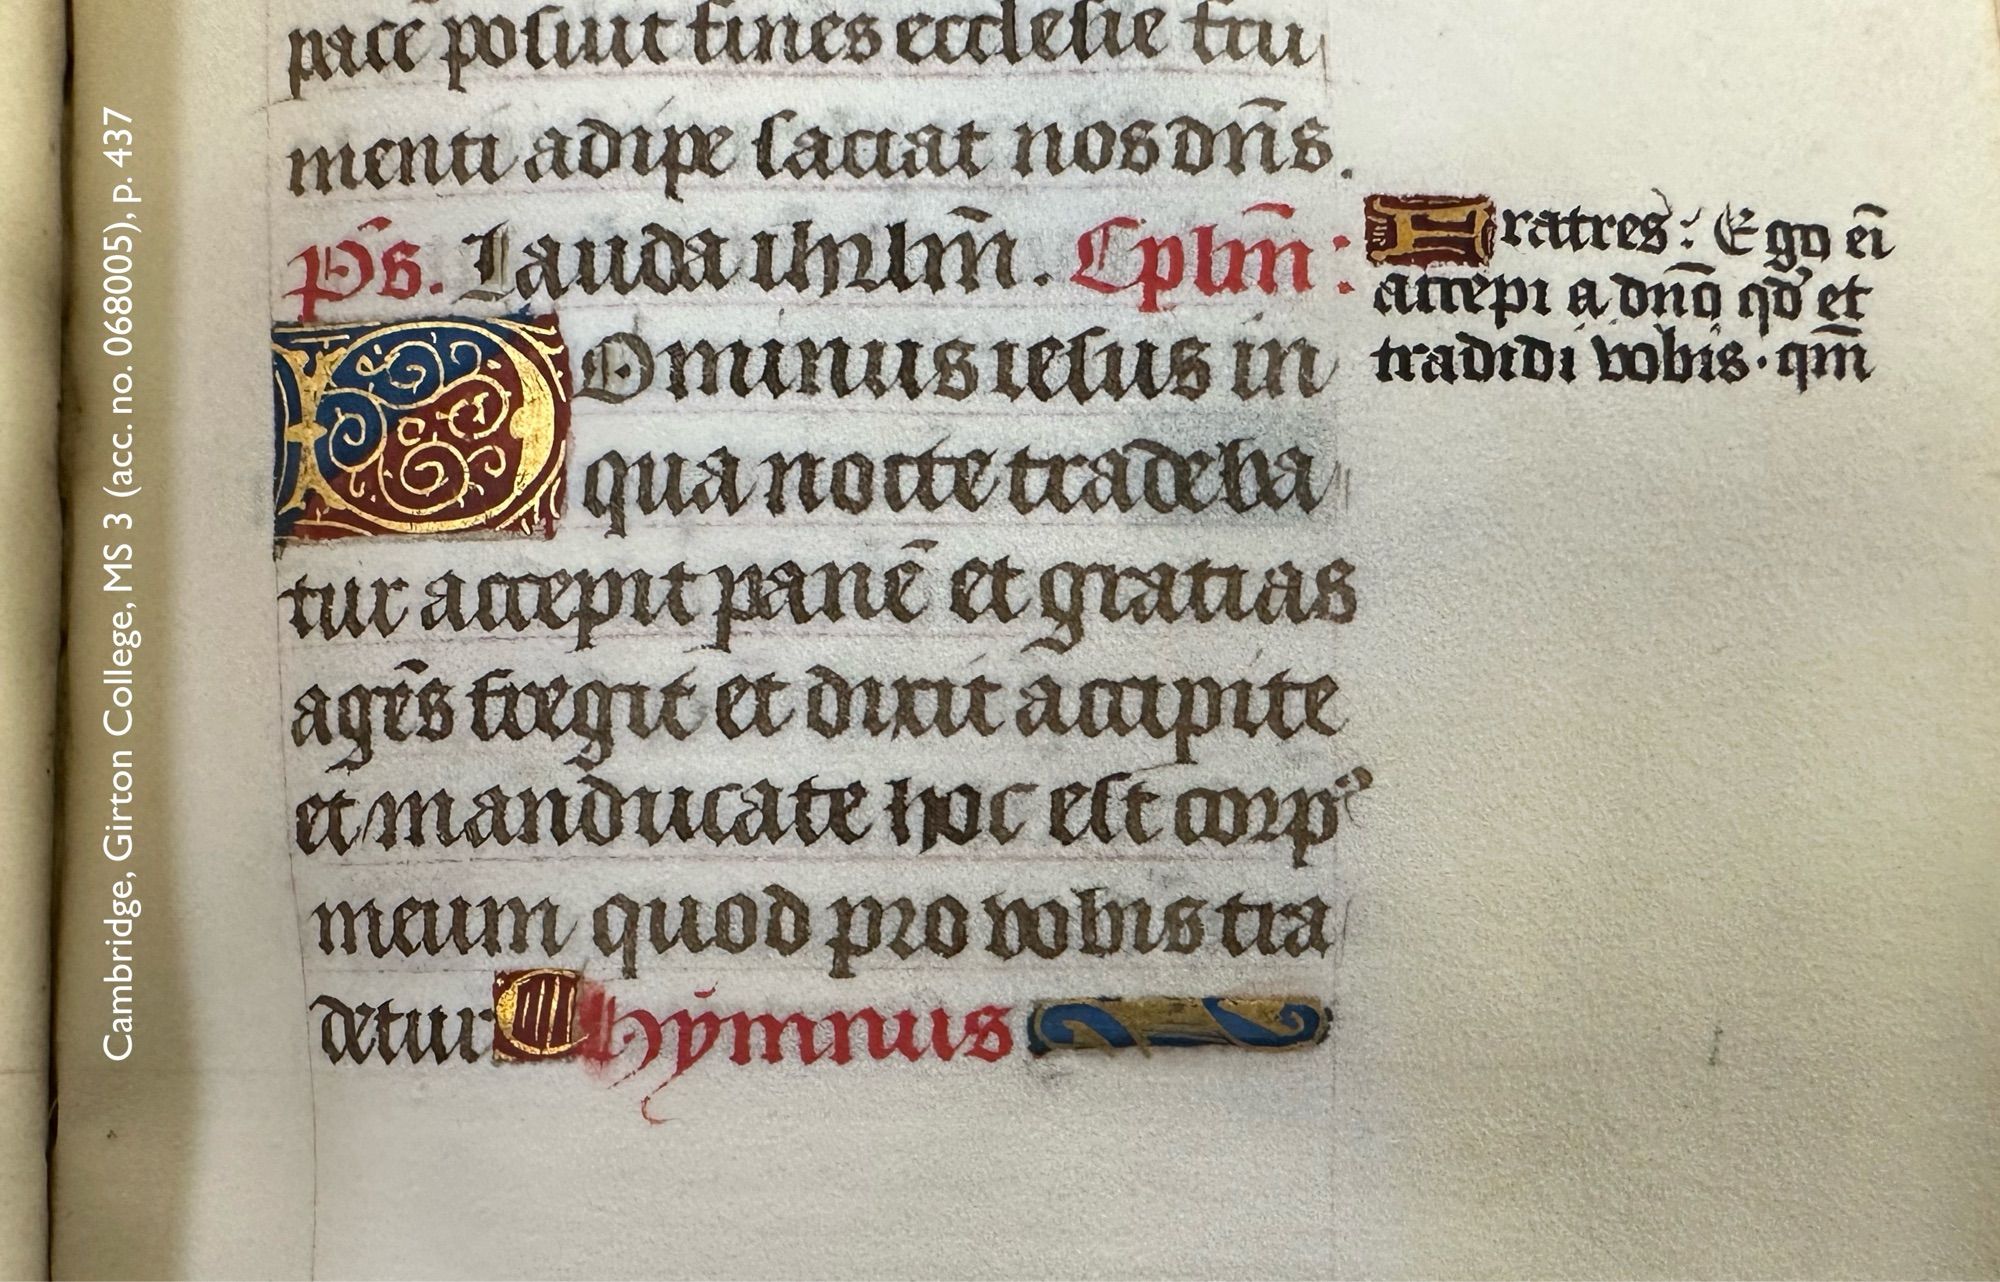 pacē posuit fines ecclesie fru
menti adipe saciat nos dn̄s.
Ps̄. Lauda ihrlm̄. Cplm̄:
Dominus iesus in
qua nocte tradeba
tur accepit panē et gratias
agēs fregit et dixit accipite
et manducate hoc est corpꝰ
meum quod pro vobis tra
detur hymnus
Fratres: Ego ei̅
accepi a dn̄o qd̕ et
tradidi vobis. qm̄
Cambridge, Girton College, MS 3 (acc. no. 068005), p. 437